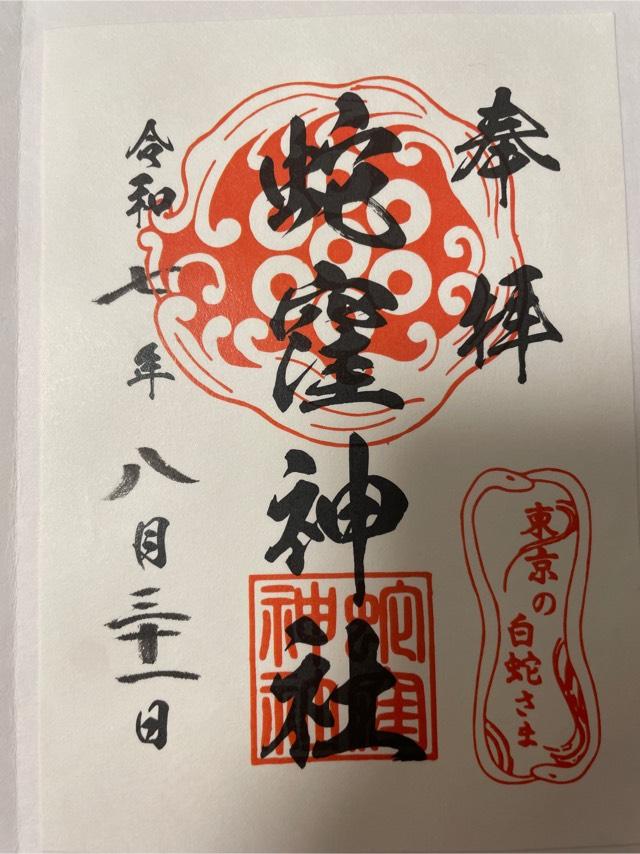 奉拝
蛇窪神社
蛇窪神社
東京の
白蛇さま
令和七年八月三十一日